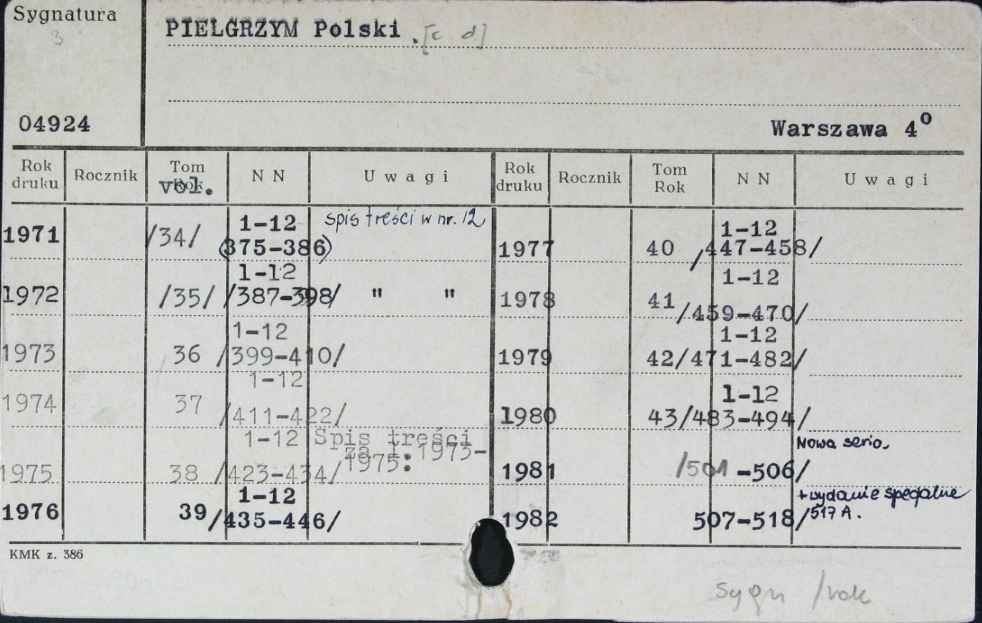 Sygnatura
3
PIELGRZYM Polski . [c d]
04924
Warszawa 4º
Rok druku Rocznik Tom Rok vol. N N Uwagi Rok druku Rocznik Tom Rok N N Uwagi
1971 /34/ 1-12 (375-386) spis treści w nr. 12
1972 /35/ 1-12 /387-398/ " "
1973 36 1-12 /399-410/
1974 37 1-12 /411-422/
1975 38 1-12 /423-434/ Spis treści za l. 1973-1975.
1976 39 1-12 /435-446/
1977 40 1-12 /447-458/
1978 41 1-12 /459-470/
1979 42 1-12 /471-482/
1980 43 1-12 /483-494/
1981 /501-506/ Nowa seria.
1982 507-518/ + wydanie specjalne 517 A.
KMK z. 386
sygn /rok